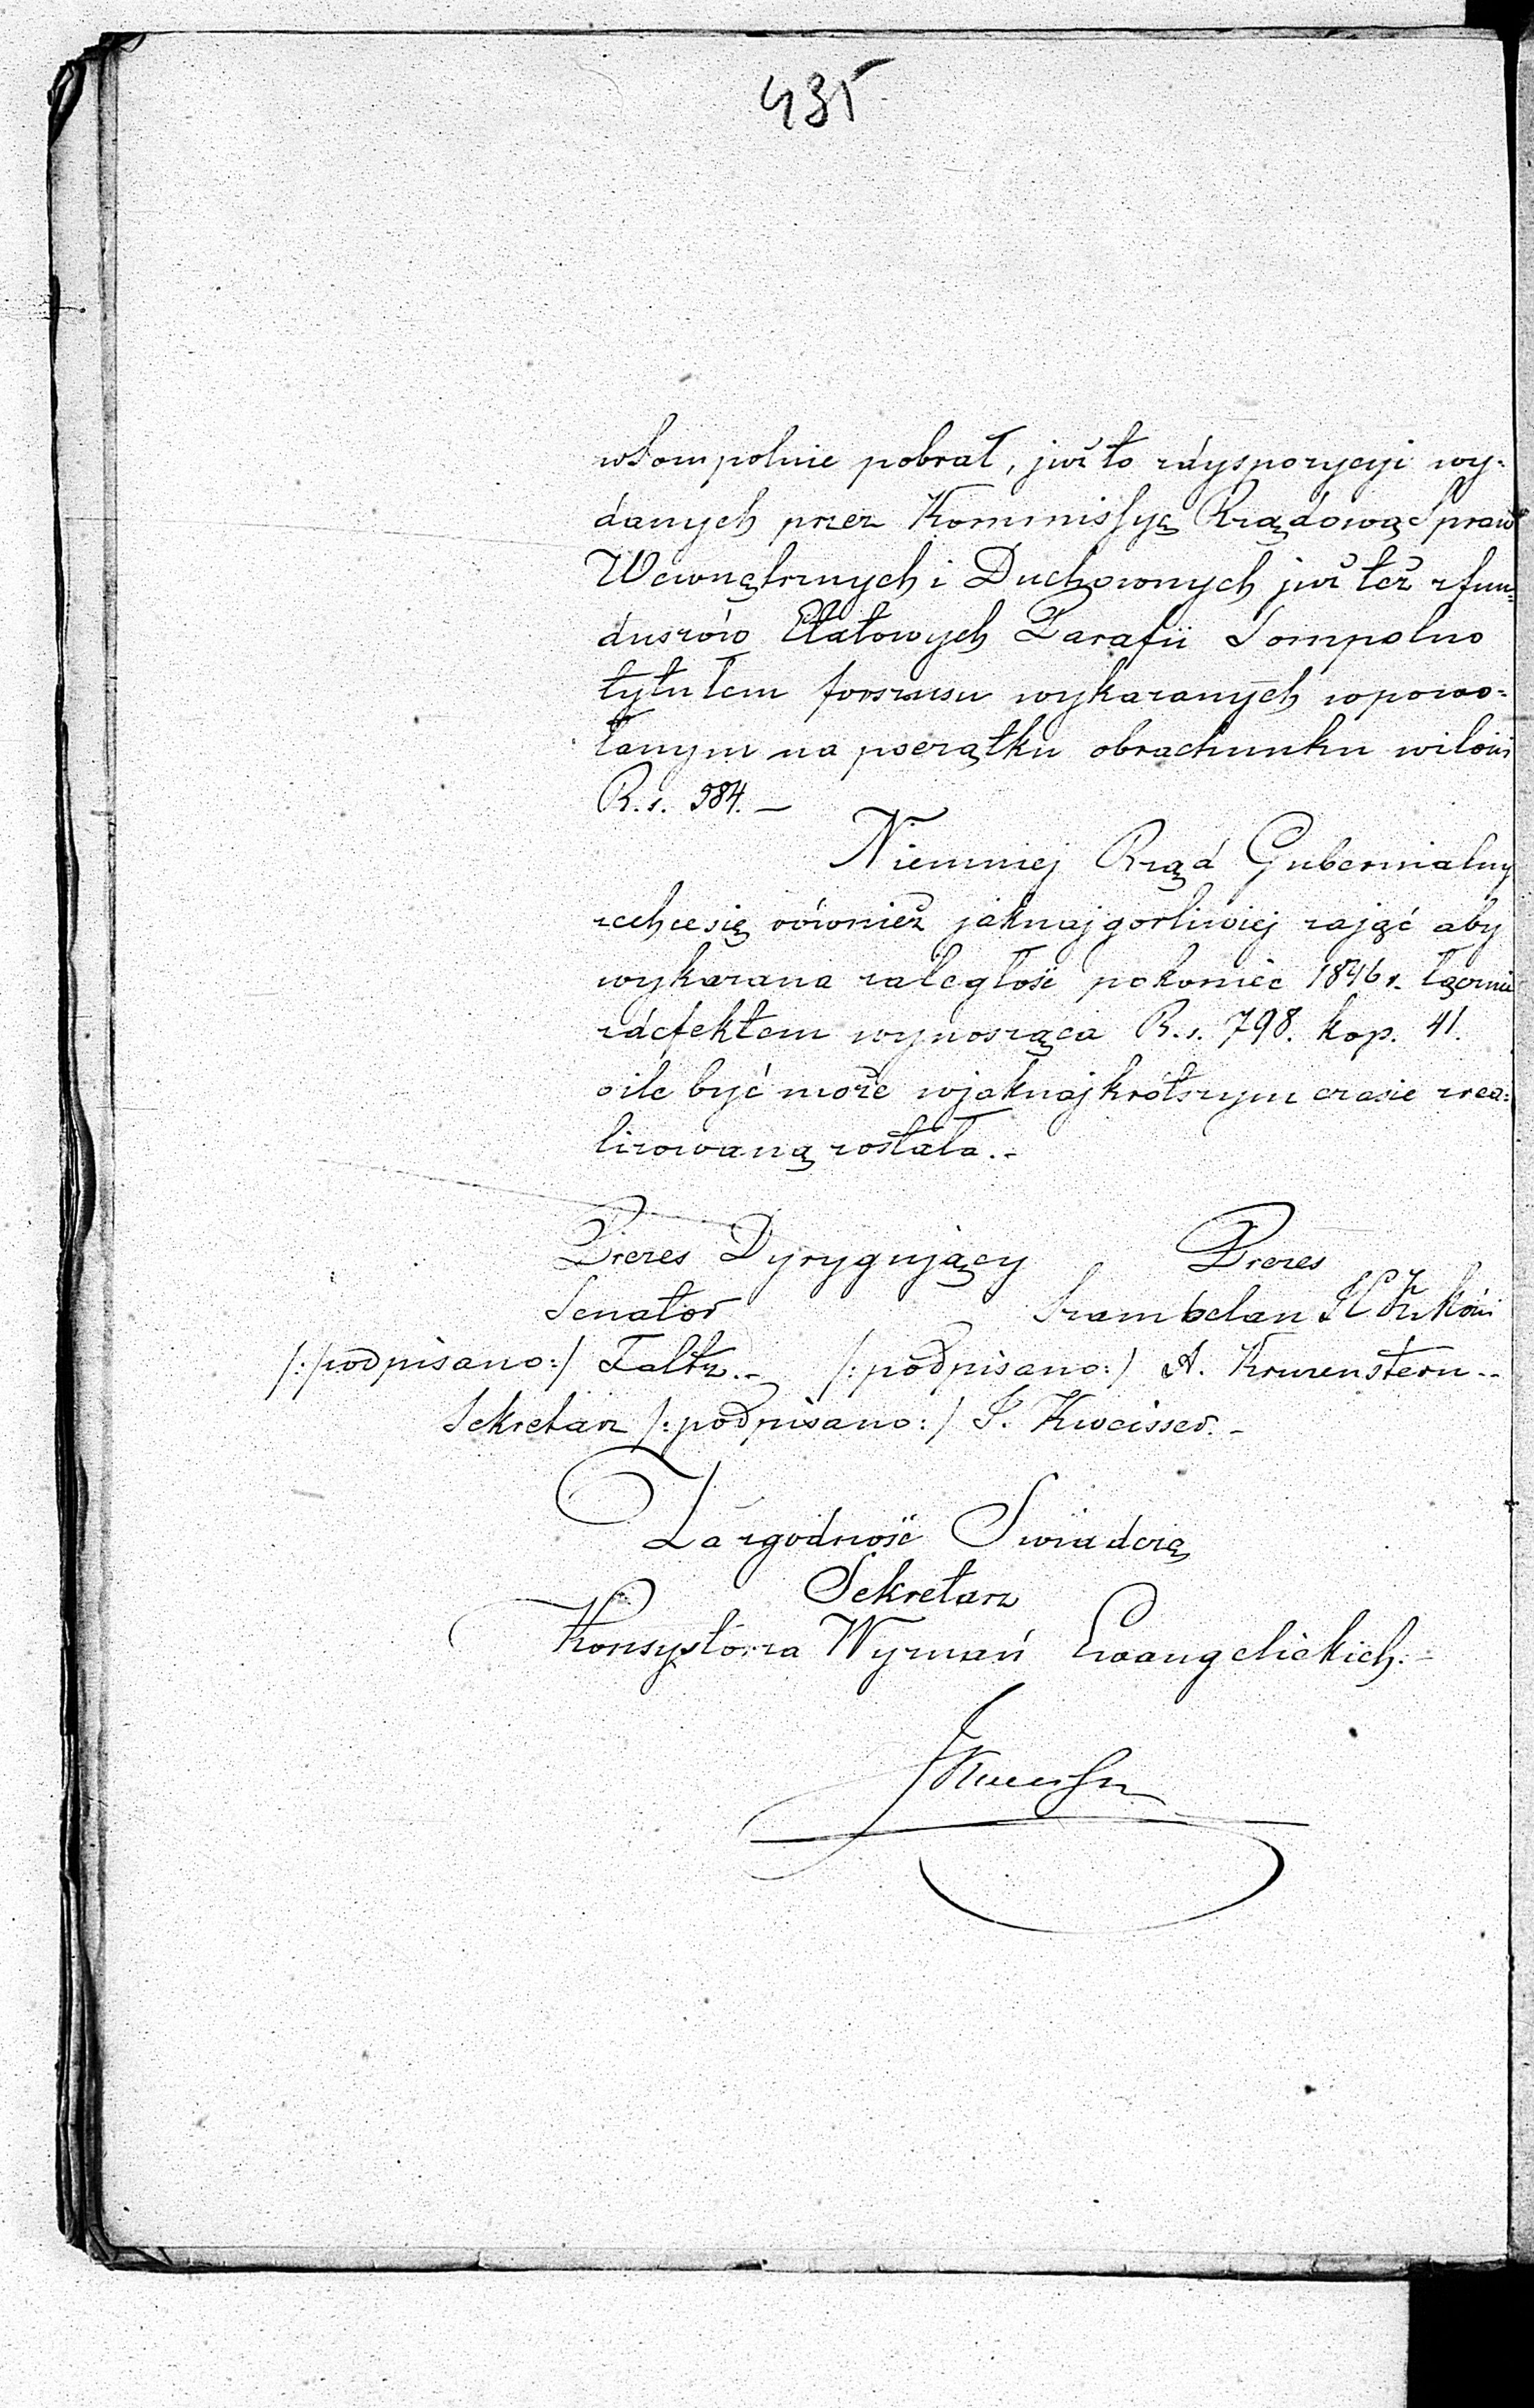 435
w Sompolnie pobrał, już to z dyspozycyi wy-
danych przez Kommissyą Rządową Spraw
Wewnętrznych i Duchownych już też z fun-
duszów Etatowych Parafii Sompolno
tytułem forszusu wykazanych w powo-
łanym na początku obrachunku w ilości
R. s. 984. —
Niemniej Rząd Gubernialny
zechce się również jaknajgorliwiej zająć aby
wykazana zaległość po koniec 1846 r. łącznie
z defektem wynosząca R. s. 798. kop. 41.
o ile być może w jaknajkrótszym czasie zrea-
lizowaną została. -
Prezes Dyrygujący Prezes
Senator Szambelan
/: podpisano :/ Faltz. - /: podpisano :/ A. Kruzenstern. -
Sekretarz /: podpisano :/ J. Kweisser. -
Za zgodność Świadczę
Sekretarz
Konsystorza Wyznań Ewangelickich. -
JKweisser